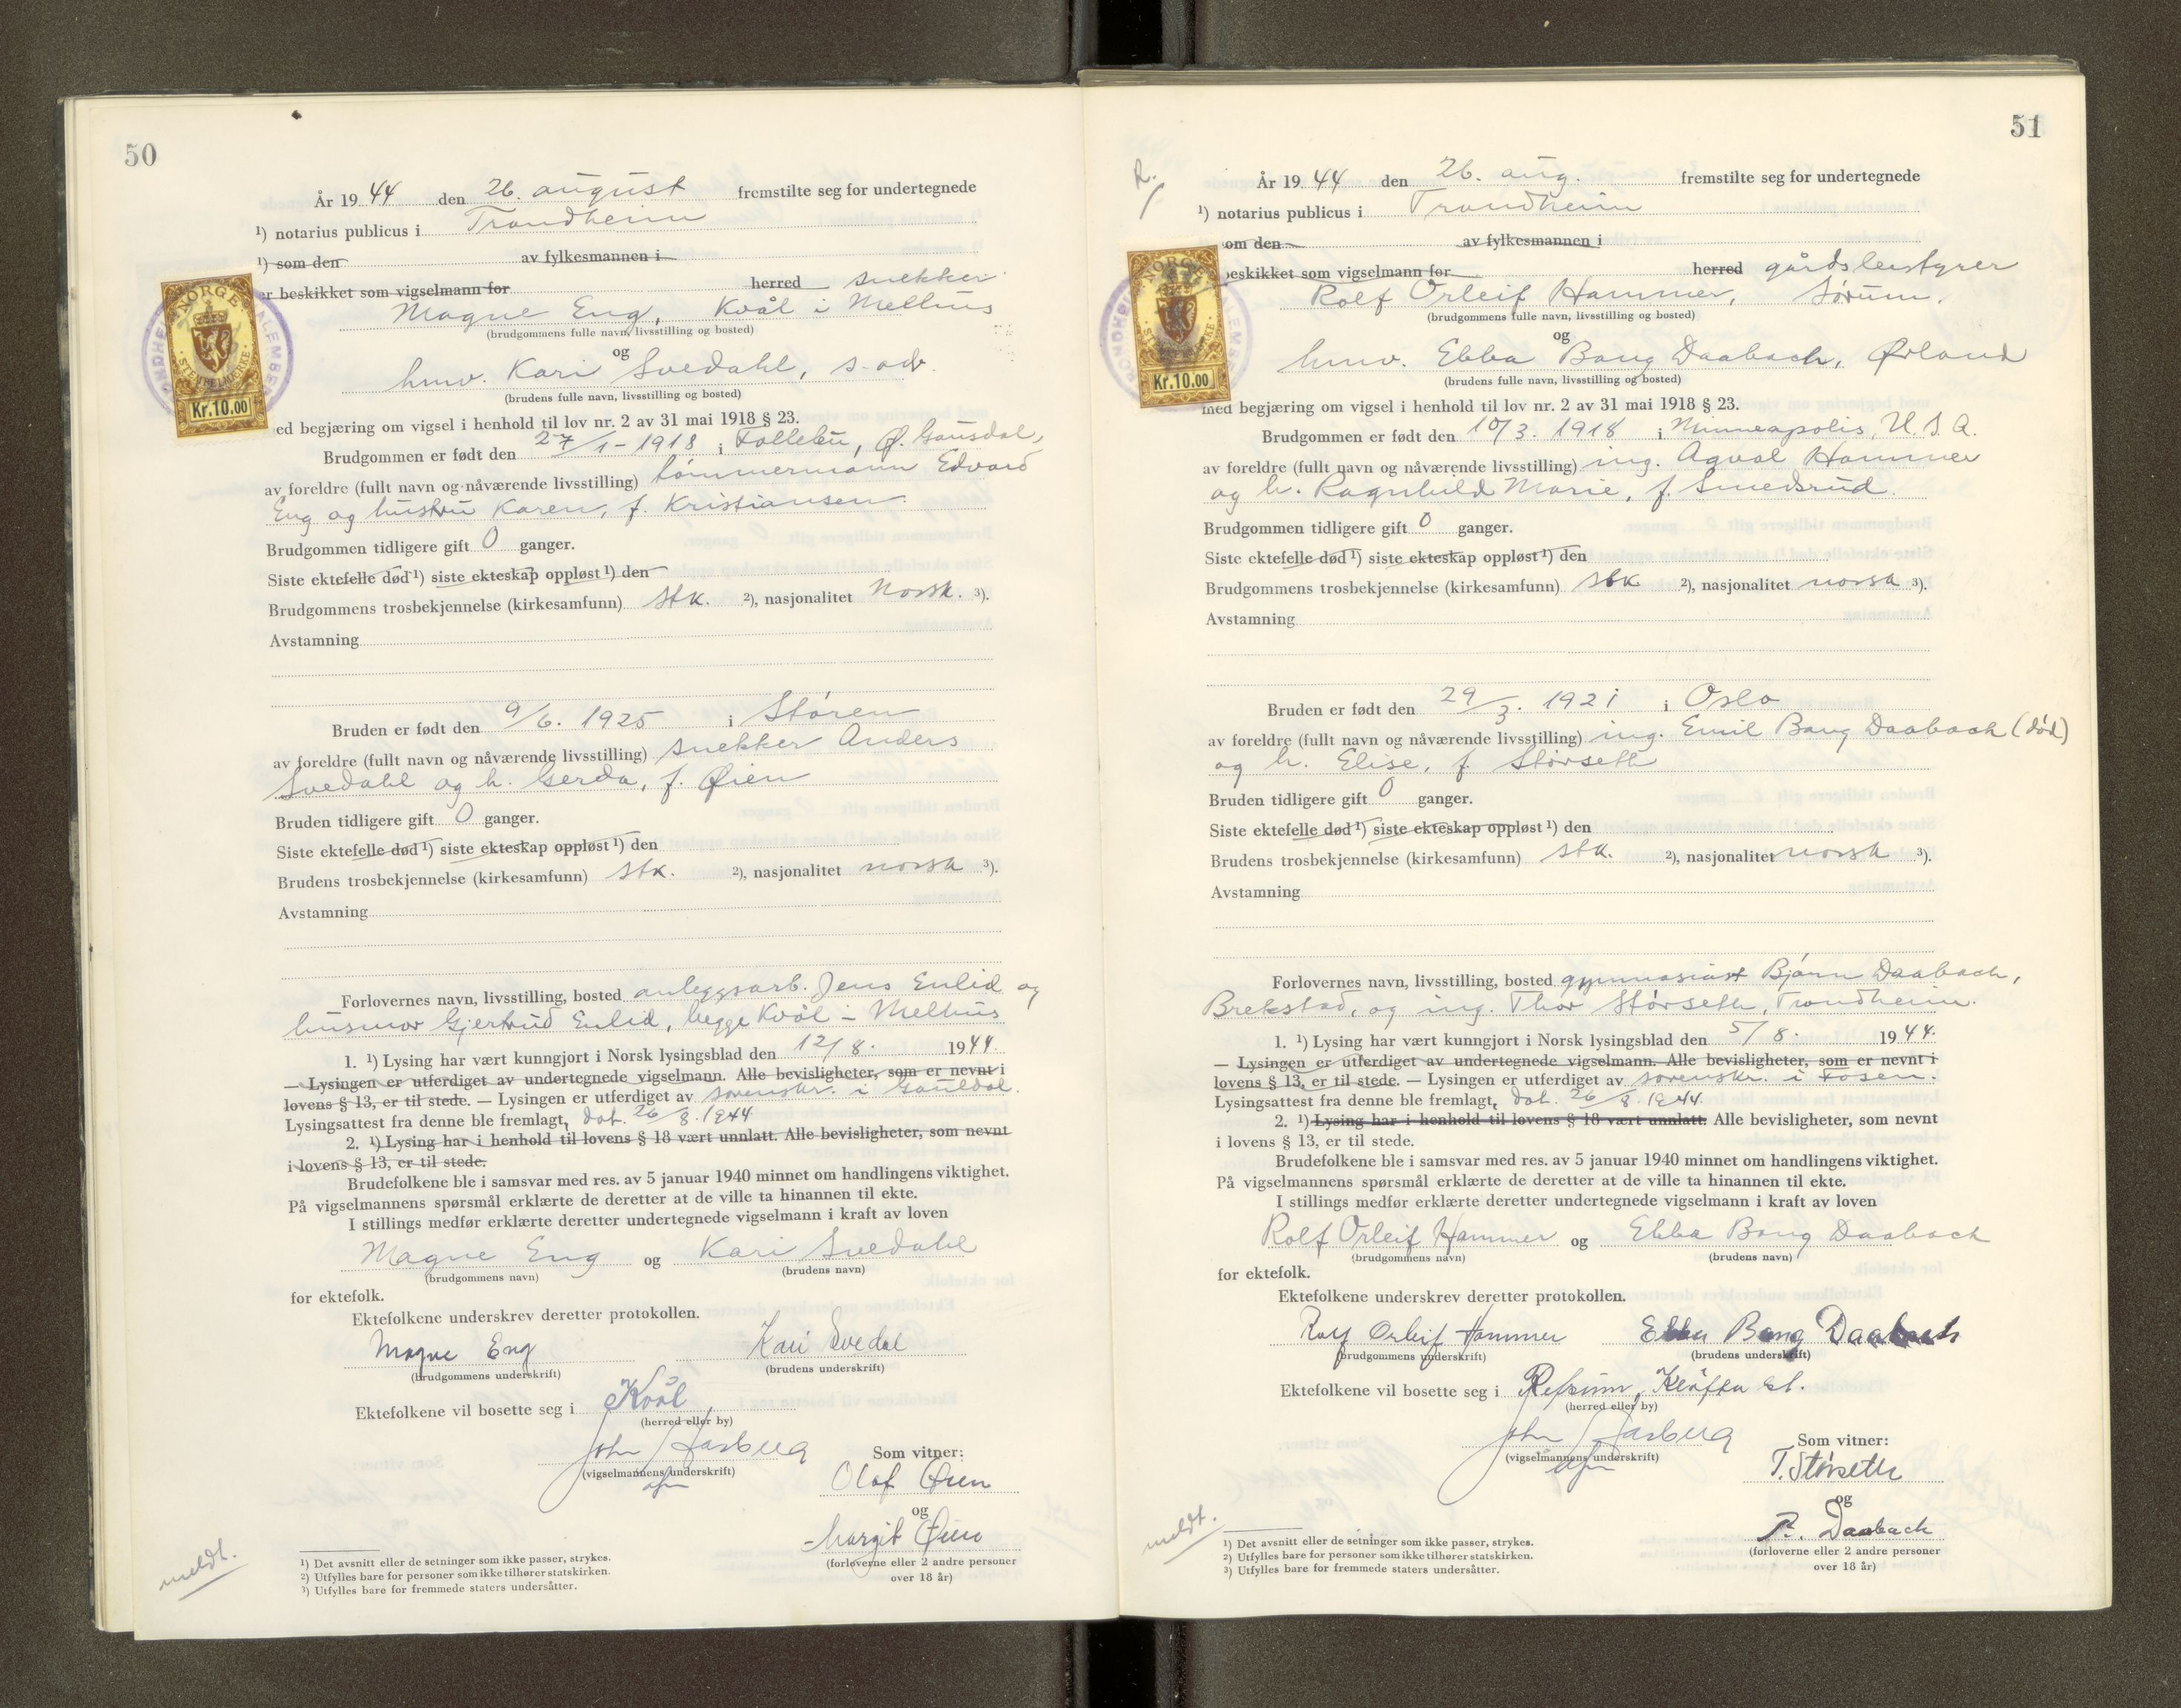 50
År 19 44 den 26. august fremstilte seg for undertegnede
¹) notarius publicus i Trondheim
¹) som den av fylkesmannen i
er beskikket som vigselmann for herred snekker
Magne Eng, Kvål i Melhus
(brudgommens fulle navn, livsstilling og bosted)
og
hmv. Kari Svedahl, s. adr.
(brudens fulle navn, livsstilling og bosted)
NORGE
STEMPELMERKE
Kr.10.00
ed begjæring om vigsel i henhold til lov nr. 2 av 31 mai 1918 § 23.
Brudgommen er født den 27/1-1918 i Follebu, Ø. Gausdal,
av foreldre (fullt navn og nåværende livsstilling) tømmermann Edvard
Eng og hustru Karen, f. Kristiansen.
Brudgommen tidligere gift 0 ganger.
Siste ektefelle død ¹) siste ekteskap oppløst ¹) den
Brudgommens trosbekjennelse (kirkesamfunn) stk. ²), nasjonalitet norsk. ³).
Avstamning
Bruden er født den 9/6. 1925 i Støren
av foreldre (fullt navn og nåværende livsstilling) snekker Anders
Svedahl og h. Gerda, f. Øien
Bruden tidligere gift 0 ganger.
Siste ektefelle død ¹) siste ekteskap oppløst ¹) den
Brudens trosbekjennelse (kirkesamfunn) stk. ²), nasjonalitet norsk ³).
Avstamning
Forlovernes navn, livsstilling, bosted anleggsarb. Jens Enlid og
husmor Gjertrud Enlid, begge Kvål - Melhus
1. ¹) Lysing har vært kunngjort i Norsk lysingsblad den 12/8. 1944.
— Lysingen er utferdiget av undertegnede vigselmann. Alle bevisligheter, som er nevnt i
lovens § 13, er til stede. — Lysingen er utferdiget av sorenskr. i Gauldal.
Lysingsattest fra denne ble fremlagt, dat. 26/8. 1944
2. ¹) Lysing har i henhold til lovens § 18 vært unnlatt. Alle bevisligheter, som nevnt
i lovens § 13, er til stede.
Brudefolkene ble i samsvar med res. av 5 januar 1940 minnet om handlingens viktighet.
På vigselmannens spørsmål erklærte de deretter at de ville ta hinannen til ekte.
I stillings medfør erklærte deretter undertegnede vigselmann i kraft av loven
Magne Eng og Kari Svedahl
(brudgommens navn) (brudens navn)
for ektefolk.
Ektefolkene underskrev deretter protokollen.
Magne Eng Kari Svedal
(brudgommens underskrift) (brudens underskrift)
Ektefolkene vil bosette seg i Kvål
(herred eller by)
John Aasberg
(vigselmannens underskrift)
Som vitner:
Olaf Øien
og
Margit Øien
(forloverne eller 2 andre personer
over 18 år)
meldt.
¹) Det avsnitt eller de setninger som ikke passer, strykes.
²) Utfylles bare for personer som ikke tilhører statskirken.
³) Utfylles bare for fremmede staters undersåtter.
51
R.
År 19 44 den 26. aug. fremstilte seg for undertegnede
¹) notarius publicus i Trondheim
om den av fylkesmannen i
beskikket som vigselmann for herred gårdsbestyrer
Rolf Orleif Hammer, Sørum.
(brudgommens fulle navn, livsstilling og bosted)
og
hmv. Ebba Bang Daabach, Ørland
(brudens fulle navn, livsstilling og bosted)
NORGE
STEMPELMERKE
Kr.10.00
med begjæring om vigsel i henhold til lov nr. 2 av 31 mai 1918 § 23.
Brudgommen er født den 10/3. 1918 i Minneapolis, U.S.A.
av foreldre (fullt navn og nåværende livsstilling) ing. Agval Hammer
og h. Ragnhild Marie, f. Smedsrud.
Brudgommen tidligere gift 0 ganger.
Siste ektefelle død ¹) siste ekteskap oppløst ¹) den
Brudgommens trosbekjennelse (kirkesamfunn) stk ²), nasjonalitet norsk ³).
Avstamning
Bruden er født den 29/3. 1921 i Oslo
av foreldre (fullt navn og nåværende livsstilling) ing. Emil Bang Daabach (død)
og h. Elise, f. Størseth
Bruden tidligere gift 0 ganger.
Siste ektefelle død ¹) siste ekteskap oppløst ¹) den
Brudens trosbekjennelse (kirkesamfunn) stk. ²), nasjonalitet norsk ³).
Avstamning
Forlovernes navn, livsstilling, bosted gymnasiast Bjørn Daabach,
Brekstad, og ing. Thor Størseth, Trondheim.
1. ¹) Lysing har vært kunngjort i Norsk lysingsblad den 5/8. 1944.
— Lysingen er utferdiget av undertegnede vigselmann. Alle bevisligheter, som er nevnt i
lovens § 13, er til stede. — Lysingen er utferdiget av sorenskr. i Fosen.
Lysingsattest fra denne ble fremlagt, dat. 26/8. 1944.
2. ¹) Lysing har i henhold til lovens § 18 vært unnlatt. Alle bevisligheter, som nevnt
i lovens § 13, er til stede.
Brudefolkene ble i samsvar med res. av 5 januar 1940 minnet om handlingens viktighet.
På vigselmannens spørsmål erklærte de deretter at de ville ta hinannen til ekte.
I stillings medfør erklærte deretter undertegnede vigselmann i kraft av loven
Rolf Orleif Hammer og Ebba Bang Daabach
(brudgommens navn) (brudens navn)
for ektefolk.
Ektefolkene underskrev deretter protokollen.
Rolf Orleif Hammer Ebba Bang Daabach
(brudgommens underskrift) (brudens underskrift)
Ektefolkene vil bosette seg i Refsum, Kløfta st.
(herred eller by)
John Aasberg
(vigselmannens underskrift)
Som vitner:
T. Størseth
og
R. Daabach
(forloverne eller 2 andre personer
over 18 år)
meldt.
¹) Det avsnitt eller de setninger som ikke passer, strykes.
²) Utfylles bare for personer som ikke tilhører statskirken.
³) Utfylles bare for fremmede staters undersåtter.